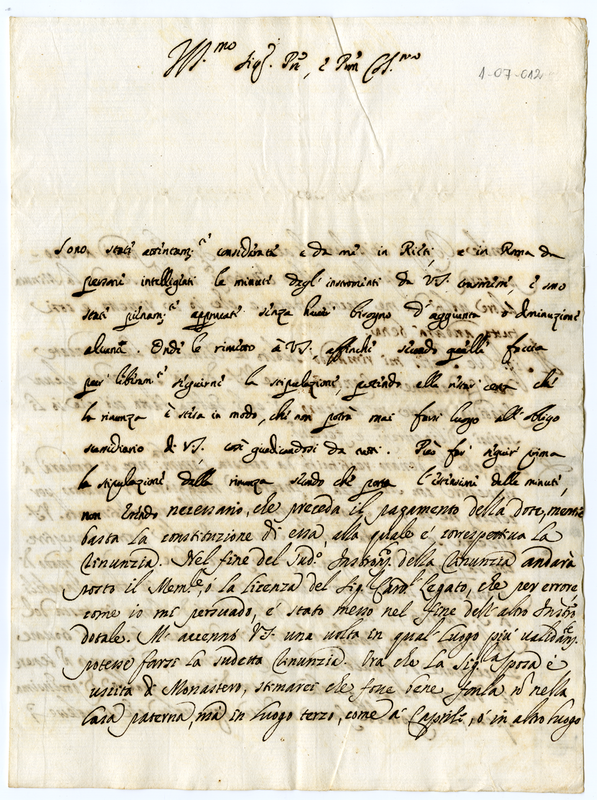 Ill.mo Sig.r P.re, e P.ron Col.mo
1-07-012
Sono stati attentam.te considerate e da me in Rieti, e in Roma da
persone intelligenti le minute degl'instromenti da VS. trasmessemi, e sono
stati pienam.te approvati senza haver bisogno d'aggiunta ò diminuzione
alcuna. Onde le rimetto à VS., affinche secondo quelle faccia
pur liberam.te seguirne la stipulazione, potendo ella restar certa che
la rinunza è stesa in modo, che non potrà mai farsi luogo all'obligo
sussidiario di VS., così giudicandosi da tutti. Può far seguir prima
la stipulazione della rinunza secondo che porta l'estensione delle minute,
non essendo necessario, che preceda il pagamento della dote, mentre
basta la constituzione di essa, alla quale e' correspettiva la
Rinunzia. Nel fine del sud.o Instrom.to della Rinunzia andarà
posto il Mem.le, ó la licenza del Sig. Card. Legato, che per errore,
come io mi persuado, e' stato messo nel fine dell'altro Instro.
dotale. Mi accennò VS. una volta in qual luogo più validam.te
potesse farsi la sudetta Rinunzia. Ora che la Sig.ra sposa è
uscita di Monastero, stimarei che fosse bene farla nò nella
Casa paterna, mà in luogo terzo, come a' Caprile, ó in altro luogo